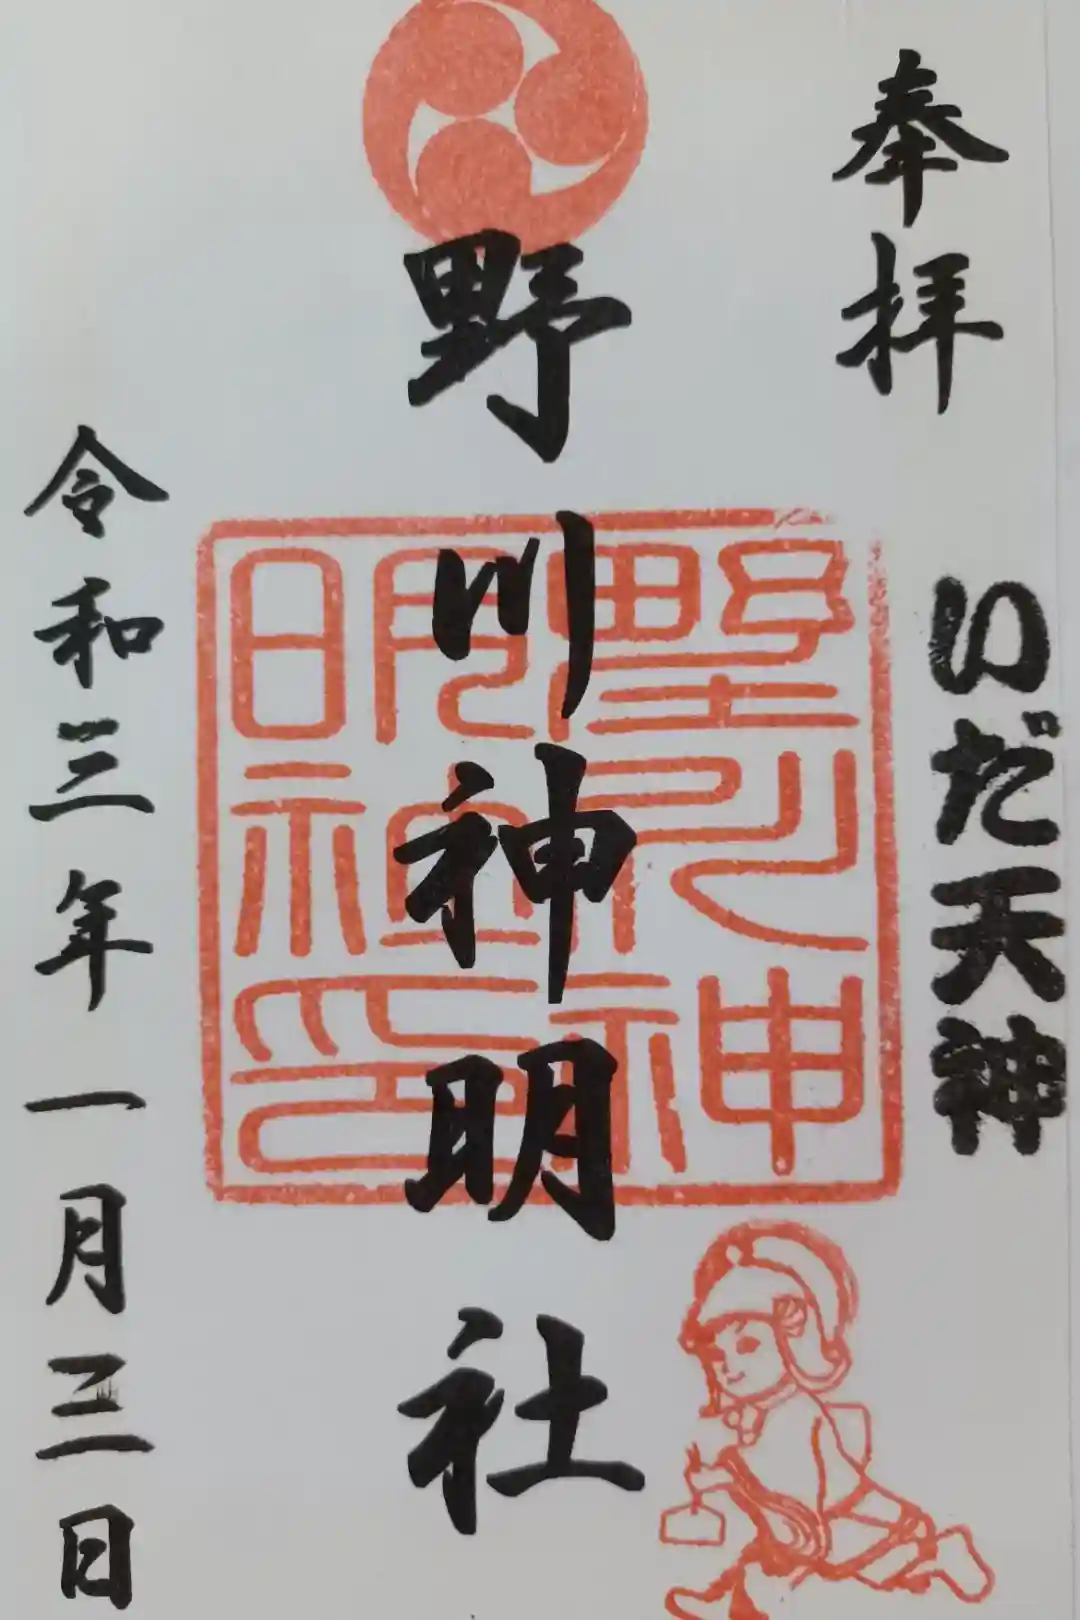 奉拝
いだ天神
野川神明社
野川神
明神印
令和三年一月三日